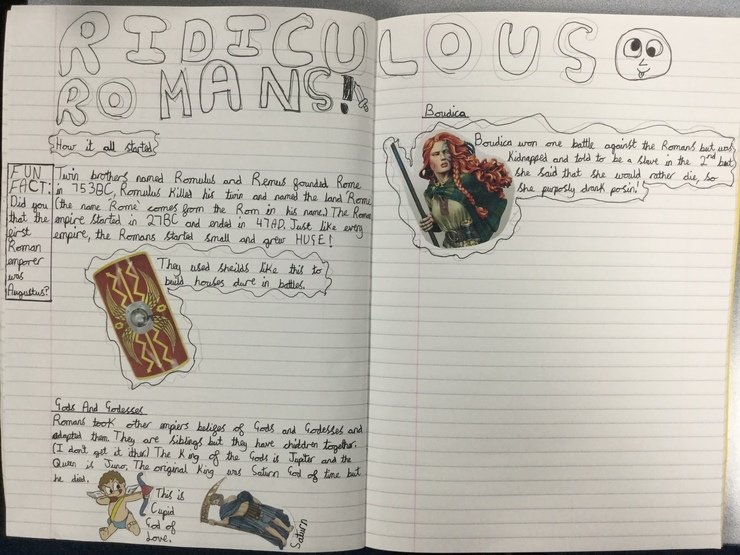 RIDICULOUS
ROMANS!
How it all started
FUN
FACT:
Did you
that the
first
Roman
emporer
was
Augustus?
Twin brothers named Romulus and Remus founded Rome
in 753BC, Romulus killed his twin and named the land 'Rome'
(the name 'Rome' comes from the Rom in his name) The Roman
empire started in 27BC and ended in 47AD. Just like every
empire, the Romans started small and grew HUGE!
They used sheilds like this to
build houses dure in battles.
Gods And Godesses
Romans took other empiers beliefs of Gods and Godesses and
adapted them. They are siblings but they have children together.
(I don't get it ither) The King of the Gods is Jupter and the
Queen is Juno. The original King was Saturn God of time but
he died.
This is
Cupid
God of
Love.
Saturn
Boudica
Boudica won one battle against the Romans but was
Kidnapped and told to be a slave in the 2nd but
she said that she would rather die, so
she purposly drank posin!